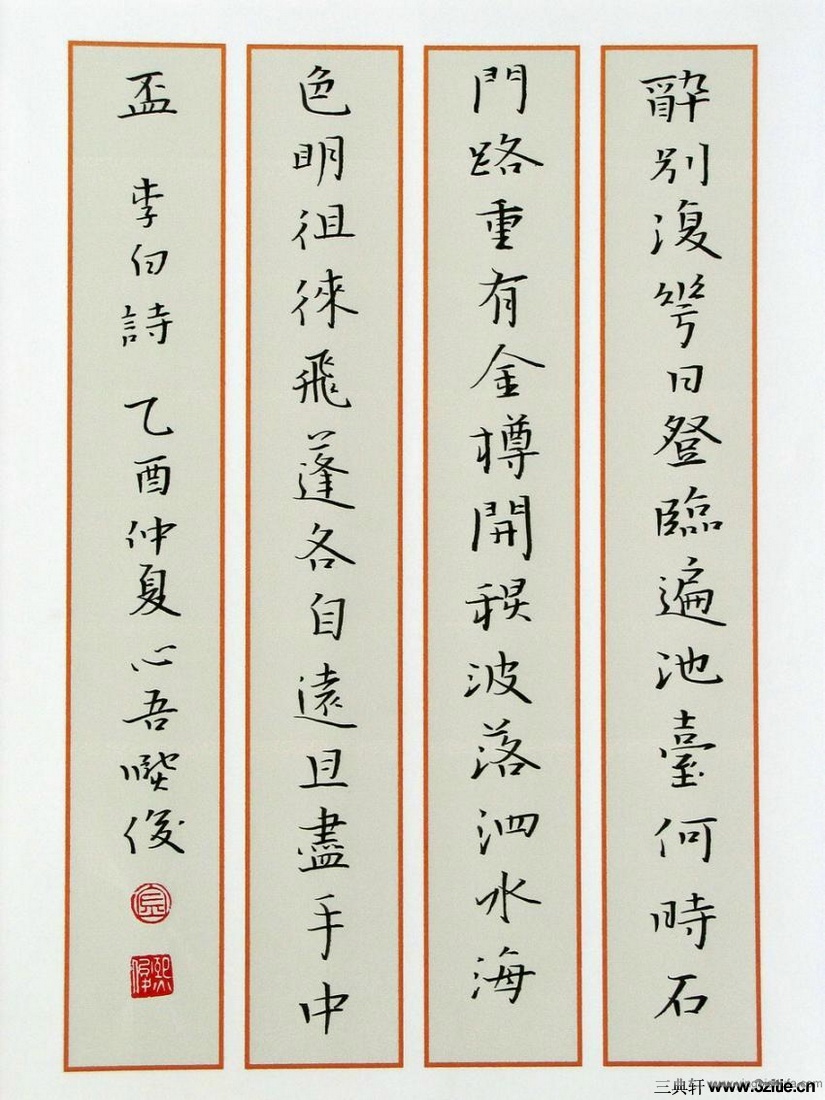 醉別復幾日登臨遍池臺何時石
門路重有金樽開秋波落泗水海
色明徂徠飛蓬各自遠且盡手中
盃 李白詩 乙酉仲夏心吾熙俊
熙俊
三典轩 www.3zitie.cn